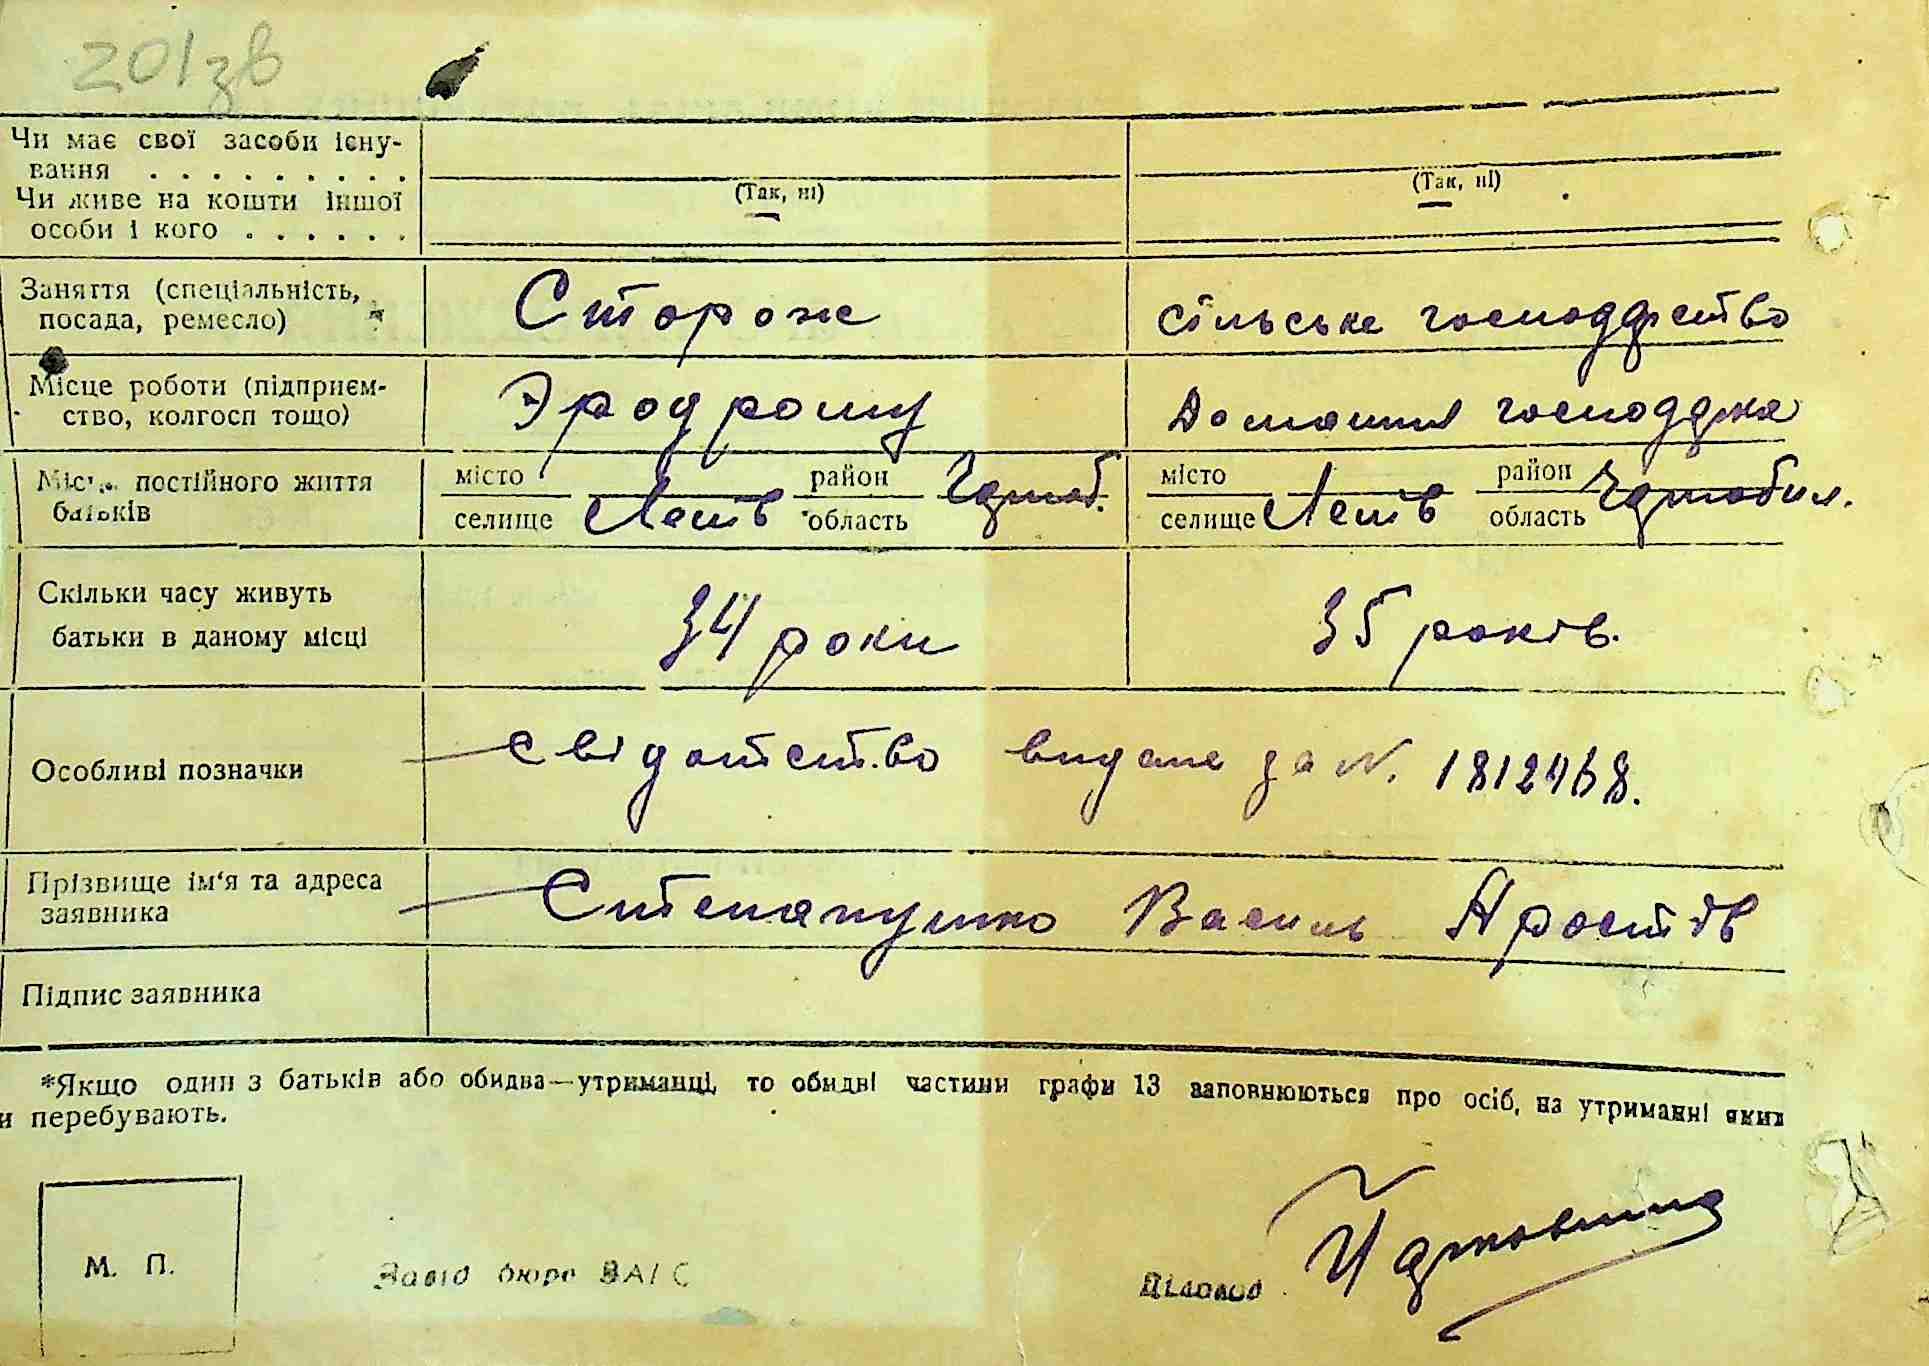 201зв
Чи має свої засоби існу-
вання . . . . . . . . .
(Так, ні) (Так, ні)
Чи живе на кошти іншої
особи і кого . . . . . .
Заняття (спеціальність, посада, ремесло) Сторож сільське господрство
Місце роботи (підприєм-
ство, колгосп тощо) Эродрому Домашня господрка
постійного життя
батьків
місто район місто район
селище Лелів область Чорноб. селище Лелів область Чорнобил.
Скільки часу живуть
батьки в даному місці 34 роки 35 років.
Особливі позначки свідотство видане за N. 1812468.
Прізвище ім'я та адреса
заявника Степанушко Василь
Підпис заявника
*Якщо один з батьків або обидва—утриманці, то обидві частини графи 13 заповнюються про осіб, на утриманні яких
и перебувають.
М. П.
Завід бюро ЗАГС Діловод